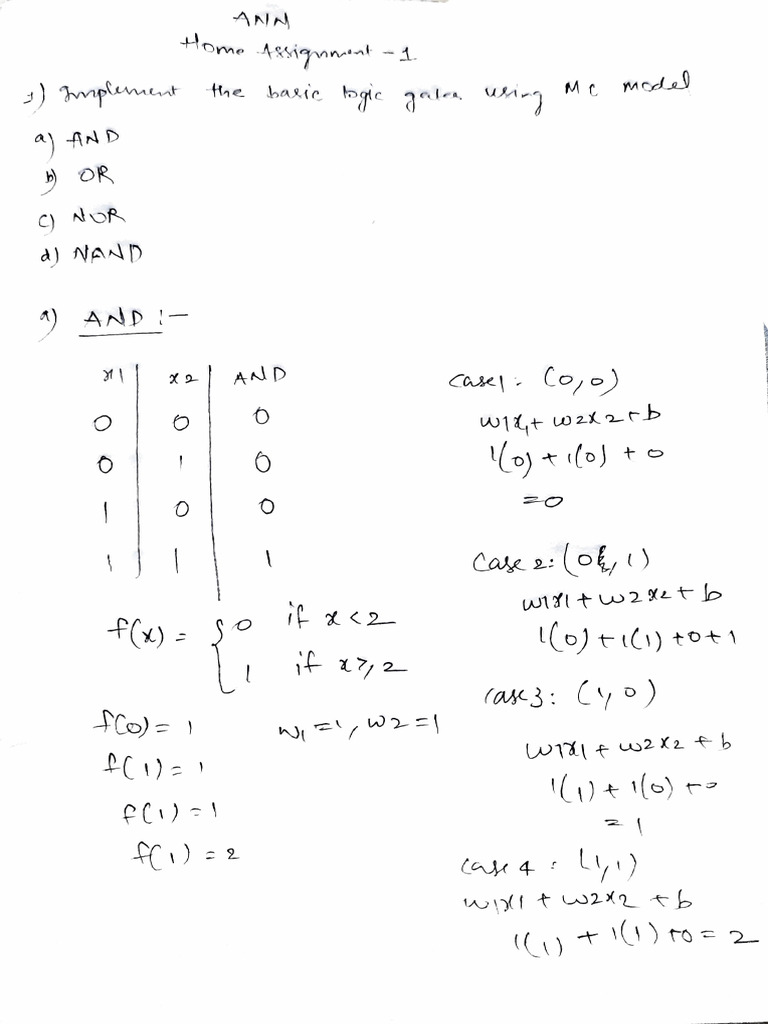 ANN
Home Assignment - 1
1) Implement the basic logic gates using MC model
a) AND
b) OR
c) NOR
d) NAND
a) AND :-
x1 | x2 | AND
0 | 0 | 0
0 | 1 | 0
1 | 0 | 0
1 | 1 | 1
f(x) = { 0 if x < 2
1 if x ≥ 2
f(0) = 1
w1 = 1, w2 = 1
f(1) = 1
f(1) = 1
f(1) = 2
case1: (0,0)
w1x1 + w2x2 + b
1(0) + 1(0) + 0
= 0
Case 2: (0, 1)
w1x1 + w2x2 + b
1(0) + 1(1) + 0 + 1
case3: (1,0)
w1x1 + w2x2 + b
1(1) + 1(0) + 0
= 1
case 4: (1,1)
w1x1 + w2x2 + b
1(1) + 1(1) + 0 = 2